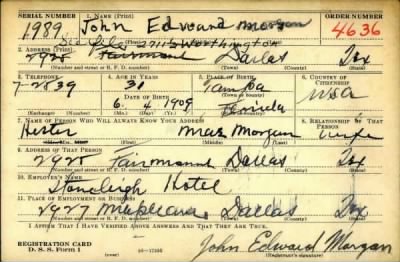 SERIAL NUMBER 1. NAME (Print) ORDER NUMBER
1989 John Edward Morgan 4636
2118 Worthington
2. ADDRESS (Print)
2925 Fairmount Dallas Tex
(Number and street or R. F. D. number) (Town) (County) (State)
3. TELEPHONE 4. AGE IN YEARS 5. PLACE OF BIRTH 6. COUNTRY OF CITIZENSHIP
7-2839 31 Tampa
DATE OF BIRTH USA
6 4 1909 Florida
(Mo.) (Day) (Yr.) (State or country)
7. NAME OF PERSON WHO WILL ALWAYS KNOW YOUR ADDRESS 8. RELATIONSHIP OF THAT PERSON
Hester Mae Morgan Wife
(Mr., Mrs., Miss) (First) (Middle) (Last)
9. ADDRESS OF THAT PERSON
2925 Fairmount Dallas Tex
(Number and street or R. F. D. number) (Town) (County) (State)
10. EMPLOYER'S NAME
Stoneleigh Hotel
11. PLACE OF EMPLOYMENT OR BUSINESS
2927 Maple Ave. Dallas Tex
(Number and street or R. F. D. number) (Town) (County) (State)
I AFFIRM THAT I HAVE VERIFIED ABOVE ANSWERS AND THAT THEY ARE TRUE.
REGISTRATION CARD
D. S. S. Form 1 John Edward Morgan
(Registrant's signature)